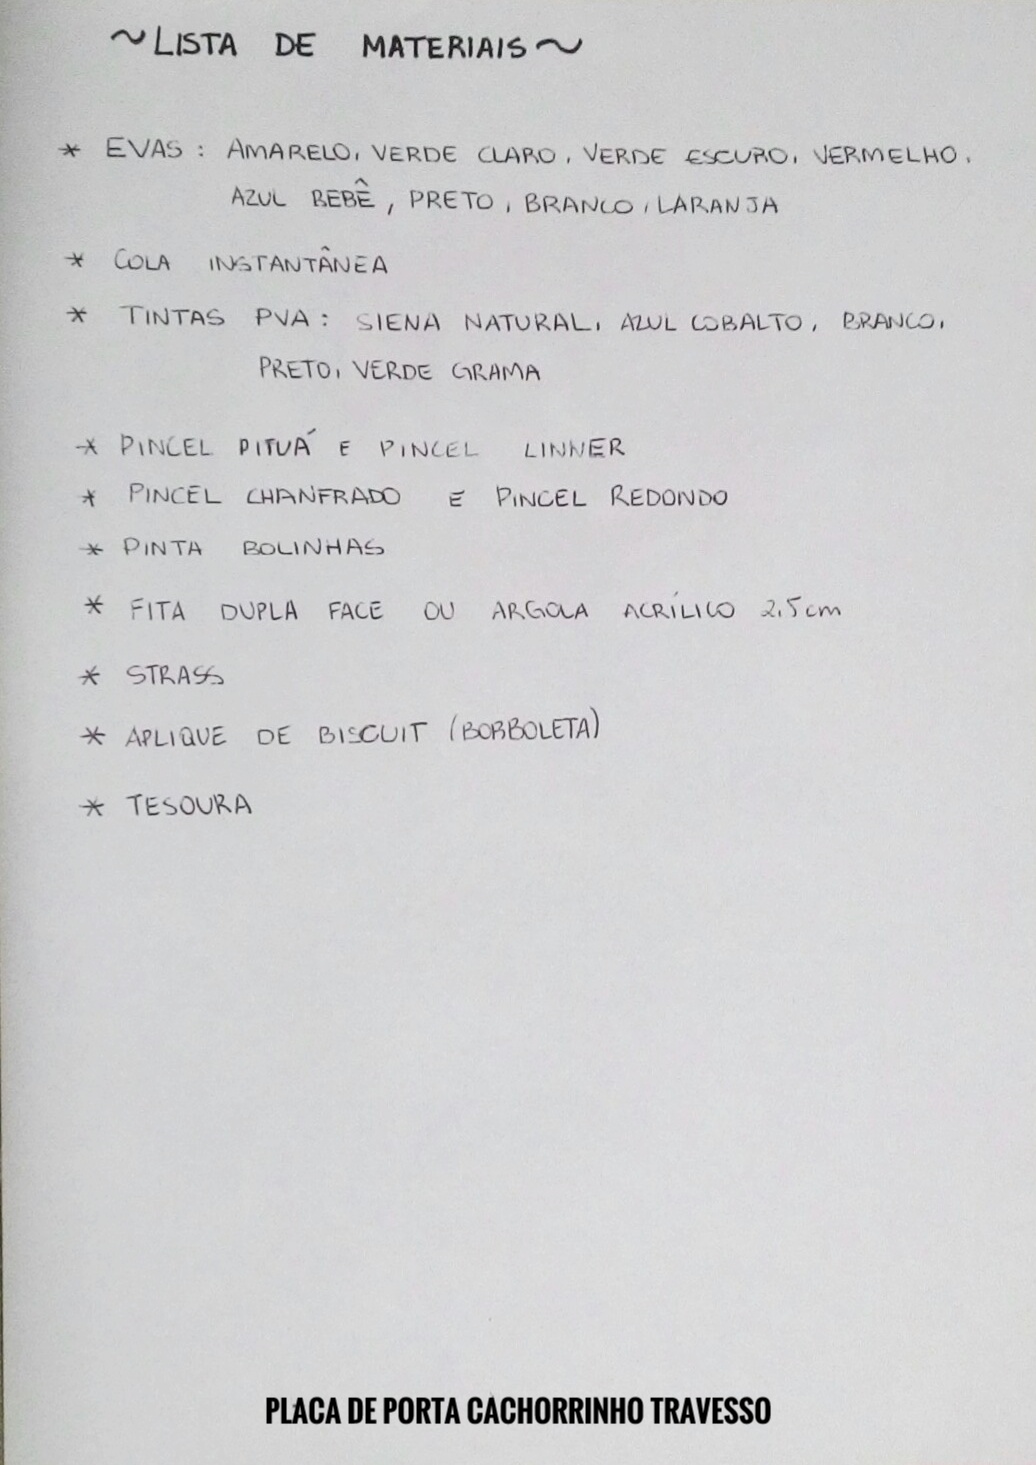 ~ LISTA DE MATERIAIS ~
* EVAS : AMARELO, VERDE CLARO, VERDE ESCURO, VERMELHO,
AZUL BEBÊ, PRETO, BRANCO, LARANJA
* COLA INSTANTÂNEA
* TINTAS PVA : SIENA NATURAL, AZUL COBALTO, BRANCO,
PRETO, VERDE GRAMA
* PINCEL PITUÁ E PINCEL LINNER
* PINCEL CHANFRADO E PINCEL REDONDO
* PINTA BOLINHAS
* FITA DUPLA FACE OU ARGOLA ACRÍLICO 2,5cm
* STRASS
* APLIQUE DE BISCUIT (BORBOLETA)
* TESOURA
PLACA DE PORTA CACHORRINHO TRAVESSO